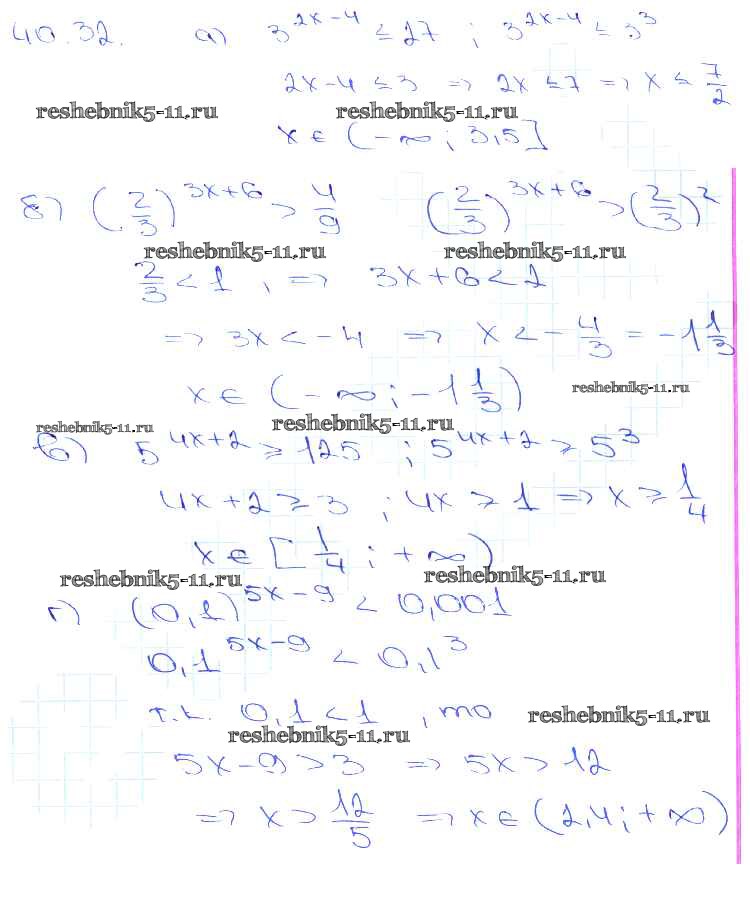 40.32. а) 3^(2x-4) ≤ 27 ; 3^(2x-4) ≤ 3^3
2x-4 ≤ 3 => 2x ≤ 7 => x ≤ 7/2
reshebnik5-11.ru reshebnik5-11.ru
x ∈ (-∞; 3,5]
б) (2/3)^(3x+6) > 4/9 (2/3)^(3x+6) > (2/3)^2
reshebnik5-11.ru reshebnik5-11.ru
2/3 < 1, => 3x+6 < 2
=> 3x < -4 => x < -4/3 = -1 1/3
x ∈ (-∞; -1 1/3) reshebnik5-11.ru
reshebnik5-11.ru reshebnik5-11.ru
в) 5^(4x+2) ≥ 125 ; 5^(4x+2) ≥ 5^3
4x+2 ≥ 3 ; 4x ≥ 1 => x ≥ 1/4
x ∈ [1/4; +∞)
reshebnik5-11.ru reshebnik5-11.ru
г) (0,1)^(5x-9) < 0,001
0,1^(5x-9) < 0,1^3
т.к. 0,1 < 1, то reshebnik5-11.ru
reshebnik5-11.ru
5x-9 > 3 => 5x > 12
=> x > 12/5 => x ∈ (2,4; +∞)